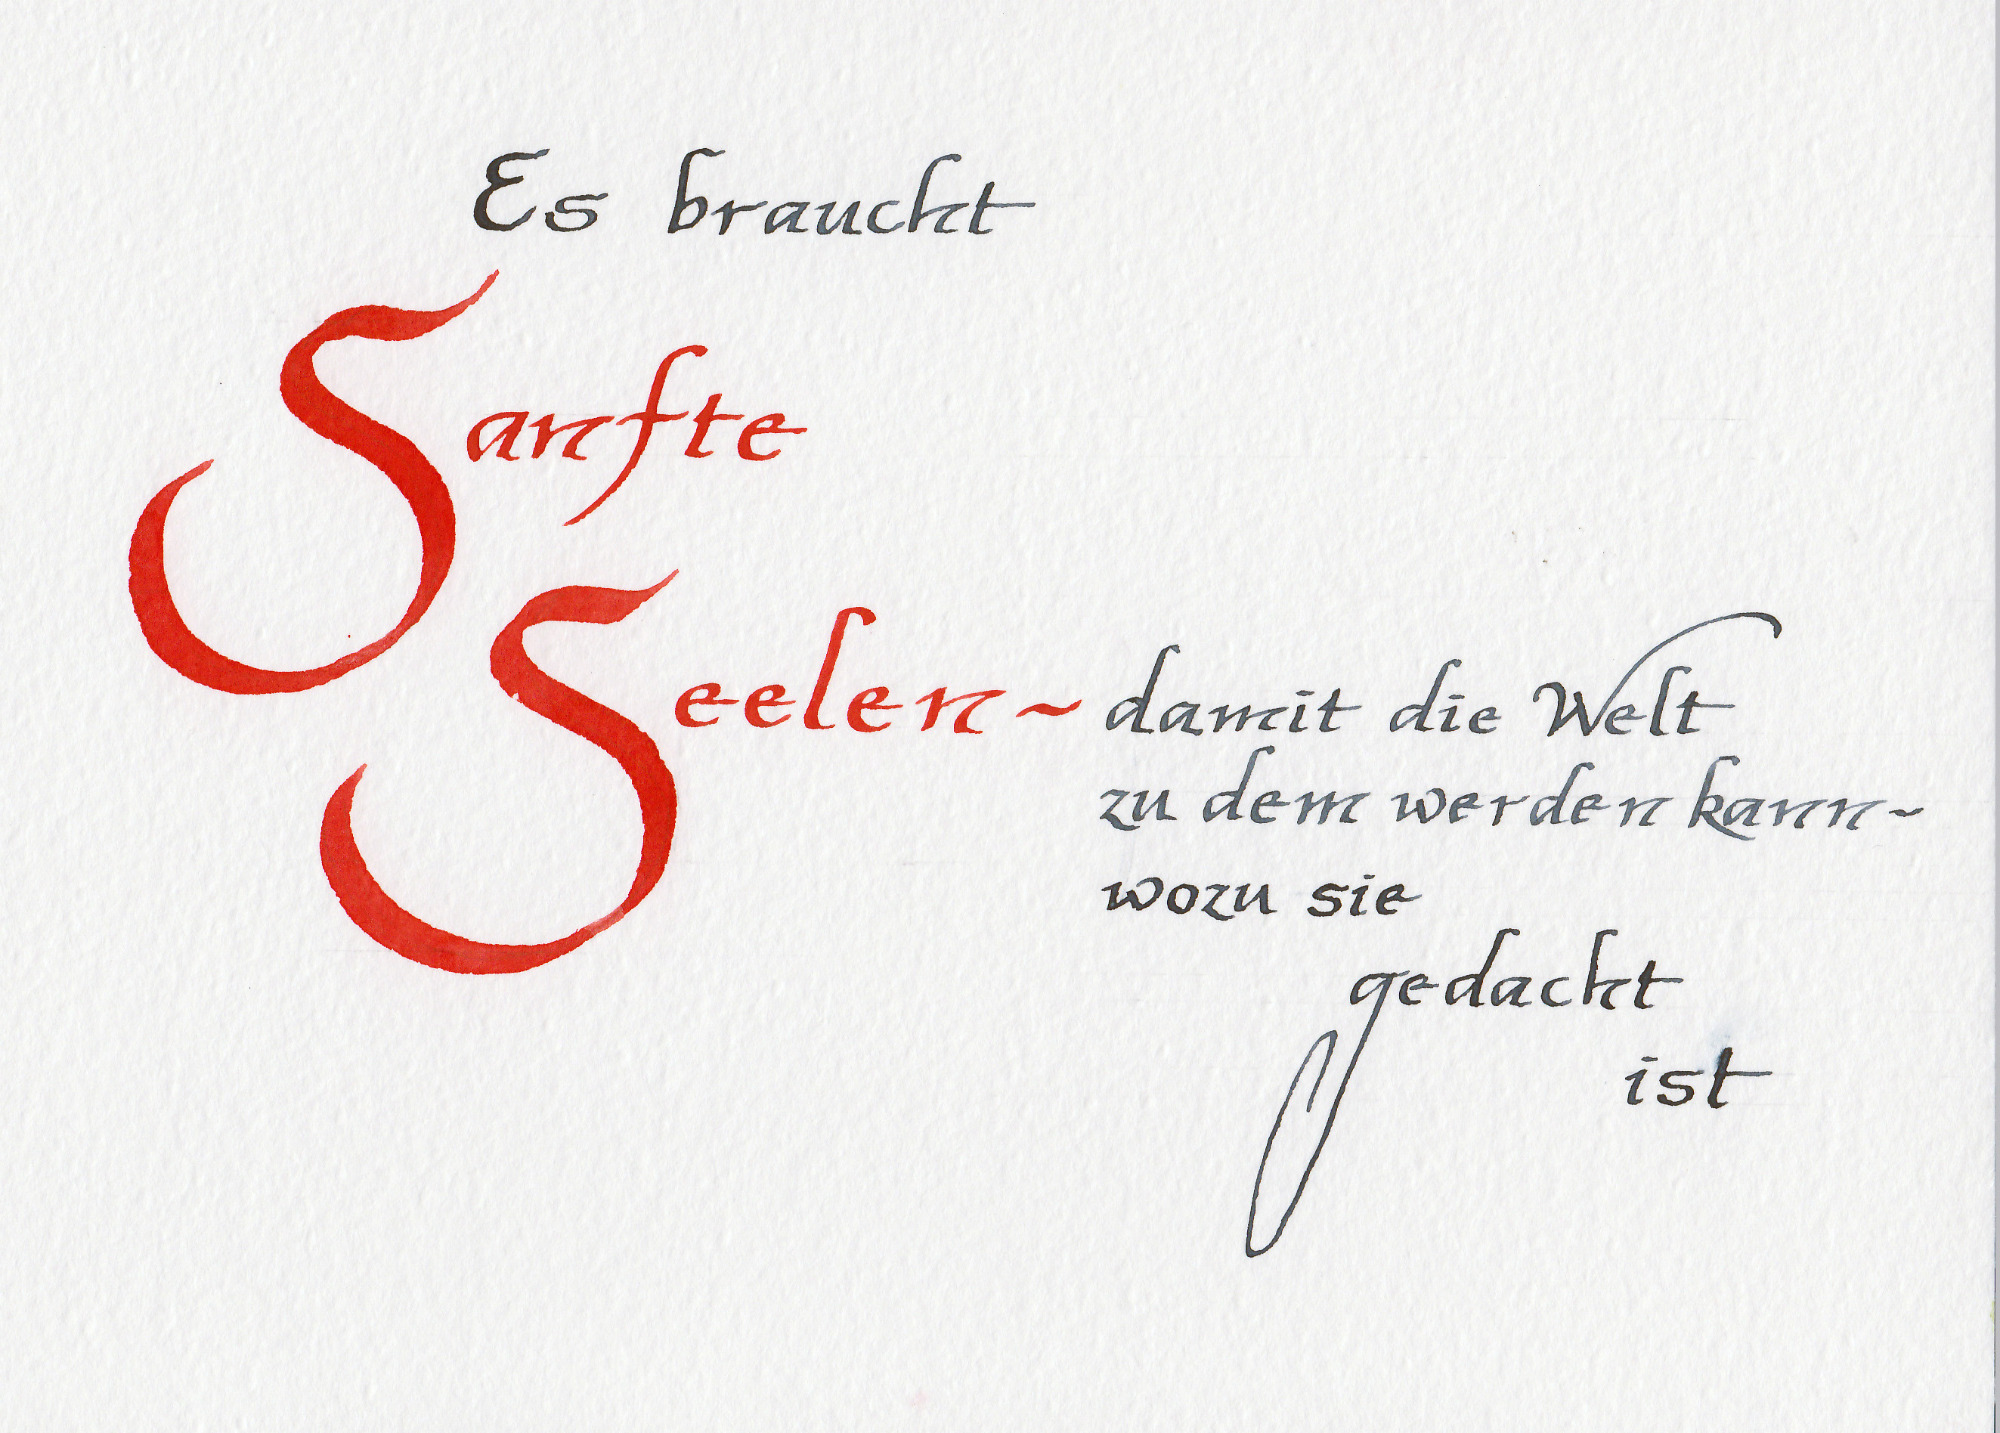 Es braucht
Sanfte
Seelen ~ damit die Welt
zu dem werden kann ~
wozu sie
gedacht
ist